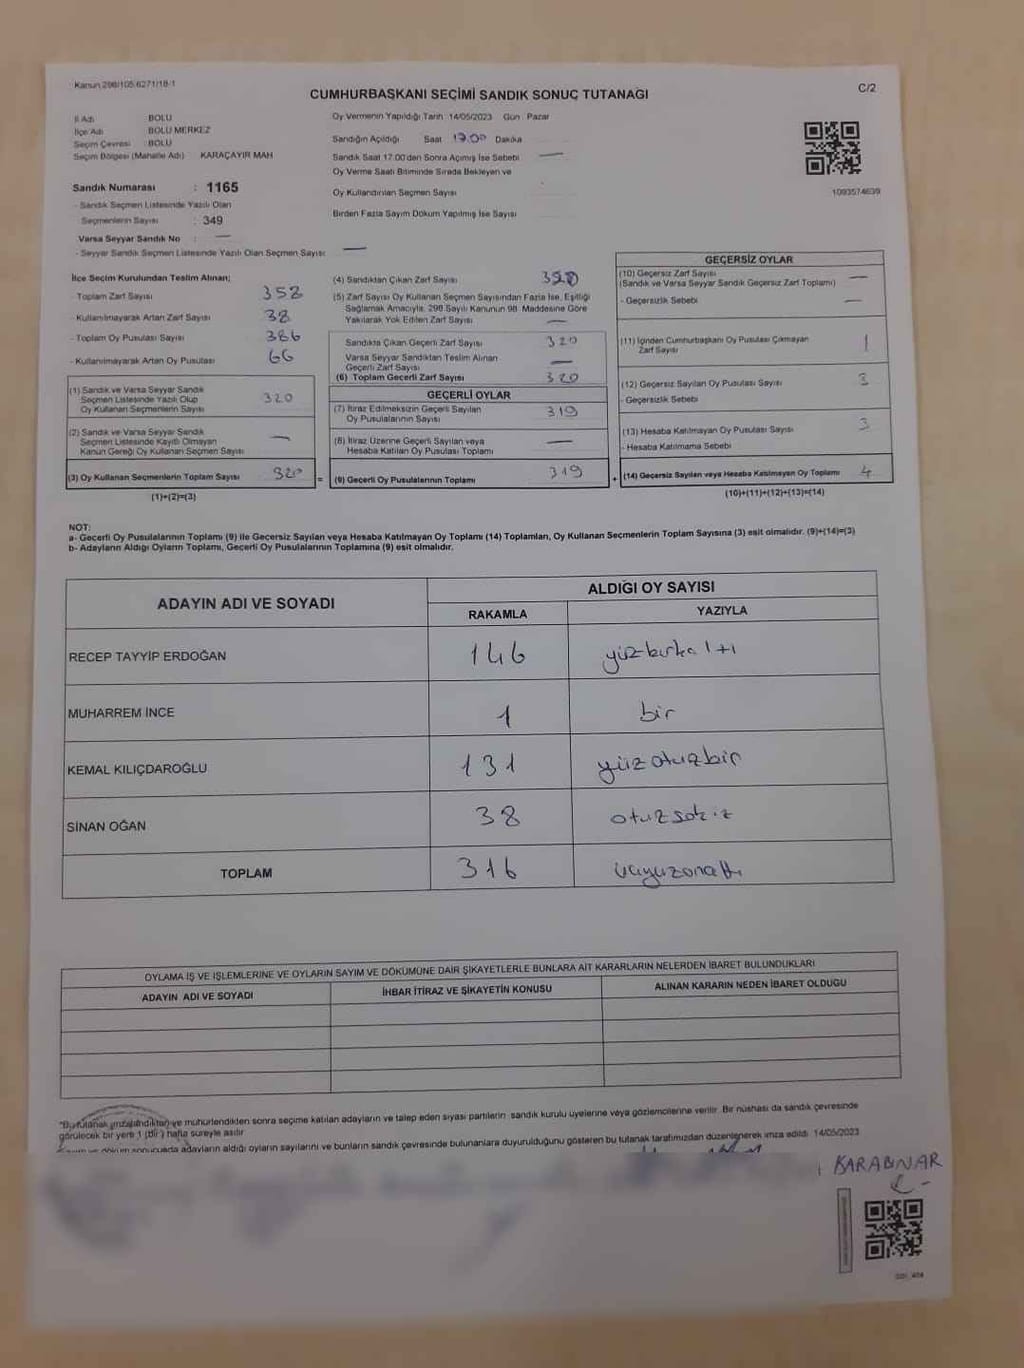 Kanun:298/105;6271/18-1
C/2
CUMHURBAŞKANI SEÇİMİ SANDIK SONUÇ TUTANAĞI
İl Adı BOLU
İlçe Adı BOLU MERKEZ
Seçim Çevresi BOLU
Seçim Bölgesi (Mahalle Adı) KARAÇAYIR MAH
Sandık Numarası : 1165
- Sandık Seçmen Listesinde Yazılı Olan
Seçmenlerin Sayısı : 349
Varsa Seyyar Sandık No : —
- Seyyar Sandık Seçmen Listesinde Yazılı Olan Seçmen Sayısı : —
Oy Vermenin Yapıldığı Tarih 14/05/2023 Gün Pazar
Sandığın Açıldığı Saat 17.00 Dakika
Sandık Saat 17.00'den Sonra Açımış İse Sebebi —
Oy Verme Saati Bitiminde Sırada Bekleyen ve
Oy Kullandırılan Seçmen Sayısı
Birden Fazla Sayım Döküm Yapılmış İse Sayısı
1093574639
İlçe Seçim Kurulundan Teslim Alınan;
- Toplam Zarf Sayısı 358
- Kullanılmayarak Artan Zarf Sayısı 38
- Toplam Oy Pusulası Sayısı 386
- Kullanılmayarak Artan Oy Pusulası 66
(1) Sandık ve Varsa Seyyar Sandık
Seçmen Listesinde Yazılı Olup
Oy Kullanan Seçmenlerin Sayısı 320
(2) Sandık ve Varsa Seyyar Sandık
Seçmen Listesinde Kayıtlı Olmayan
Kanun Gereği Oy Kullanan Seçmen Sayısı —
(3) Oy Kullanan Seçmenlerin Toplam Sayısı 320
(1)+(2)=(3)
(4) Sandıktan Çıkan Zarf Sayısı 320
(5) Zarf Sayısı Oy Kullanan Seçmen Sayısından Fazla İse, Eşitliği
Sağlamak Amacıyla; 298 Sayılı Kanunun 98. Maddesine Göre
Yakılarak Yok Edilen Zarf Sayısı —
Sandıkta Çıkan Geçerli Zarf Sayısı 320
Varsa Seyyar Sandıktan Teslim Alınan
Geçerli Zarf Sayısı —
(6) Toplam Geçerli Zarf Sayısı 320
GEÇERLİ OYLAR
(7) İtiraz Edilmeksizin Geçerli Sayılan
Oy Pusulalarının Sayısı 319
(8) İtiraz Üzerine Geçerli Sayılan veya
Hesaba Katılan Oy Pusulası Toplamı —
= (9) Geçerli Oy Pusulalarının Toplamı 319
GEÇERSİZ OYLAR
(10) Geçersiz Zarf Sayısı —
(Sandık ve Varsa Seyyar Sandık Geçersiz Zarf Toplamı)
- Geçersizlik Sebebi —
(11) İçinden Cumhurbaşkanı Oy Pusulası Çıkmayan
Zarf Sayısı 1
(12) Geçersiz Sayılan Oy Pusulası Sayısı 3
- Geçersizlik Sebebi
(13) Hesaba Katılmayan Oy Pusulası Sayısı 3
- Hesaba Katılmama Sebebi
+ (14) Geçersiz Sayılan veya Hesaba Katılmayan Oy Toplamı 4
(10)+(11)+(12)+(13)=(14)
NOT:
a- Geçerli Oy Pusulalarının Toplamı (9) ile Geçersiz Sayılan veya Hesaba Katılmayan Oy Toplamı (14) Toplamları, Oy Kullanan Seçmenlerin Toplam Sayısına (3) eşit olmalıdır. (9)+(14)=(3)
b- Adayların Aldığı Oyların Toplamı, Geçerli Oy Pusulalarının Toplamına (9) eşit olmalıdır.
ADAYIN ADI VE SOYADI ALDIĞI OY SAYISI
RAKAMLA YAZIYLA
RECEP TAYYİP ERDOĞAN 146 yüzkırkaltı
MUHARREM İNCE 1 bir
KEMAL KILIÇDAROĞLU 131 yüzotuzbir
SİNAN OĞAN 38 otuzsekiz
TOPLAM 316 üçyüzonaltı
OYLAMA İŞ VE İŞLEMLERİNE VE OYLARIN SAYIM VE DÖKÜMÜNE DAİR ŞİKAYETLERLE BUNLARA AİT KARARLARIN NELERDEN İBARET BULUNDUKLARI
ADAYIN ADI VE SOYADI İHBAR İTİRAZ VE ŞİKAYETİN KONUSU ALINAN KARARIN NEDEN İBARET OLDUĞU
"Bu tutanak imzalandıktan ve mühürlendikten sonra seçime katılan adayların ve talep eden siyasi partilerin sandık kurulu üyelerine veya gözlemcilerine verilir. Bir nüshası da sandık çevresinde
görülecek bir yere 1 (Bir) hafta süreyle asılır
Sayım ve döküm sonucunda adayların aldığı oyların sayılarını ve bunların sandık çevresinde bulunanlara duyurulduğunu gösteren bu tutanak tarafımızdan düzenlenerek imza edildi. 14/05/2023
KARABINAR